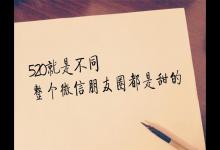 520就是不同
整个微信朋友圈都是甜的